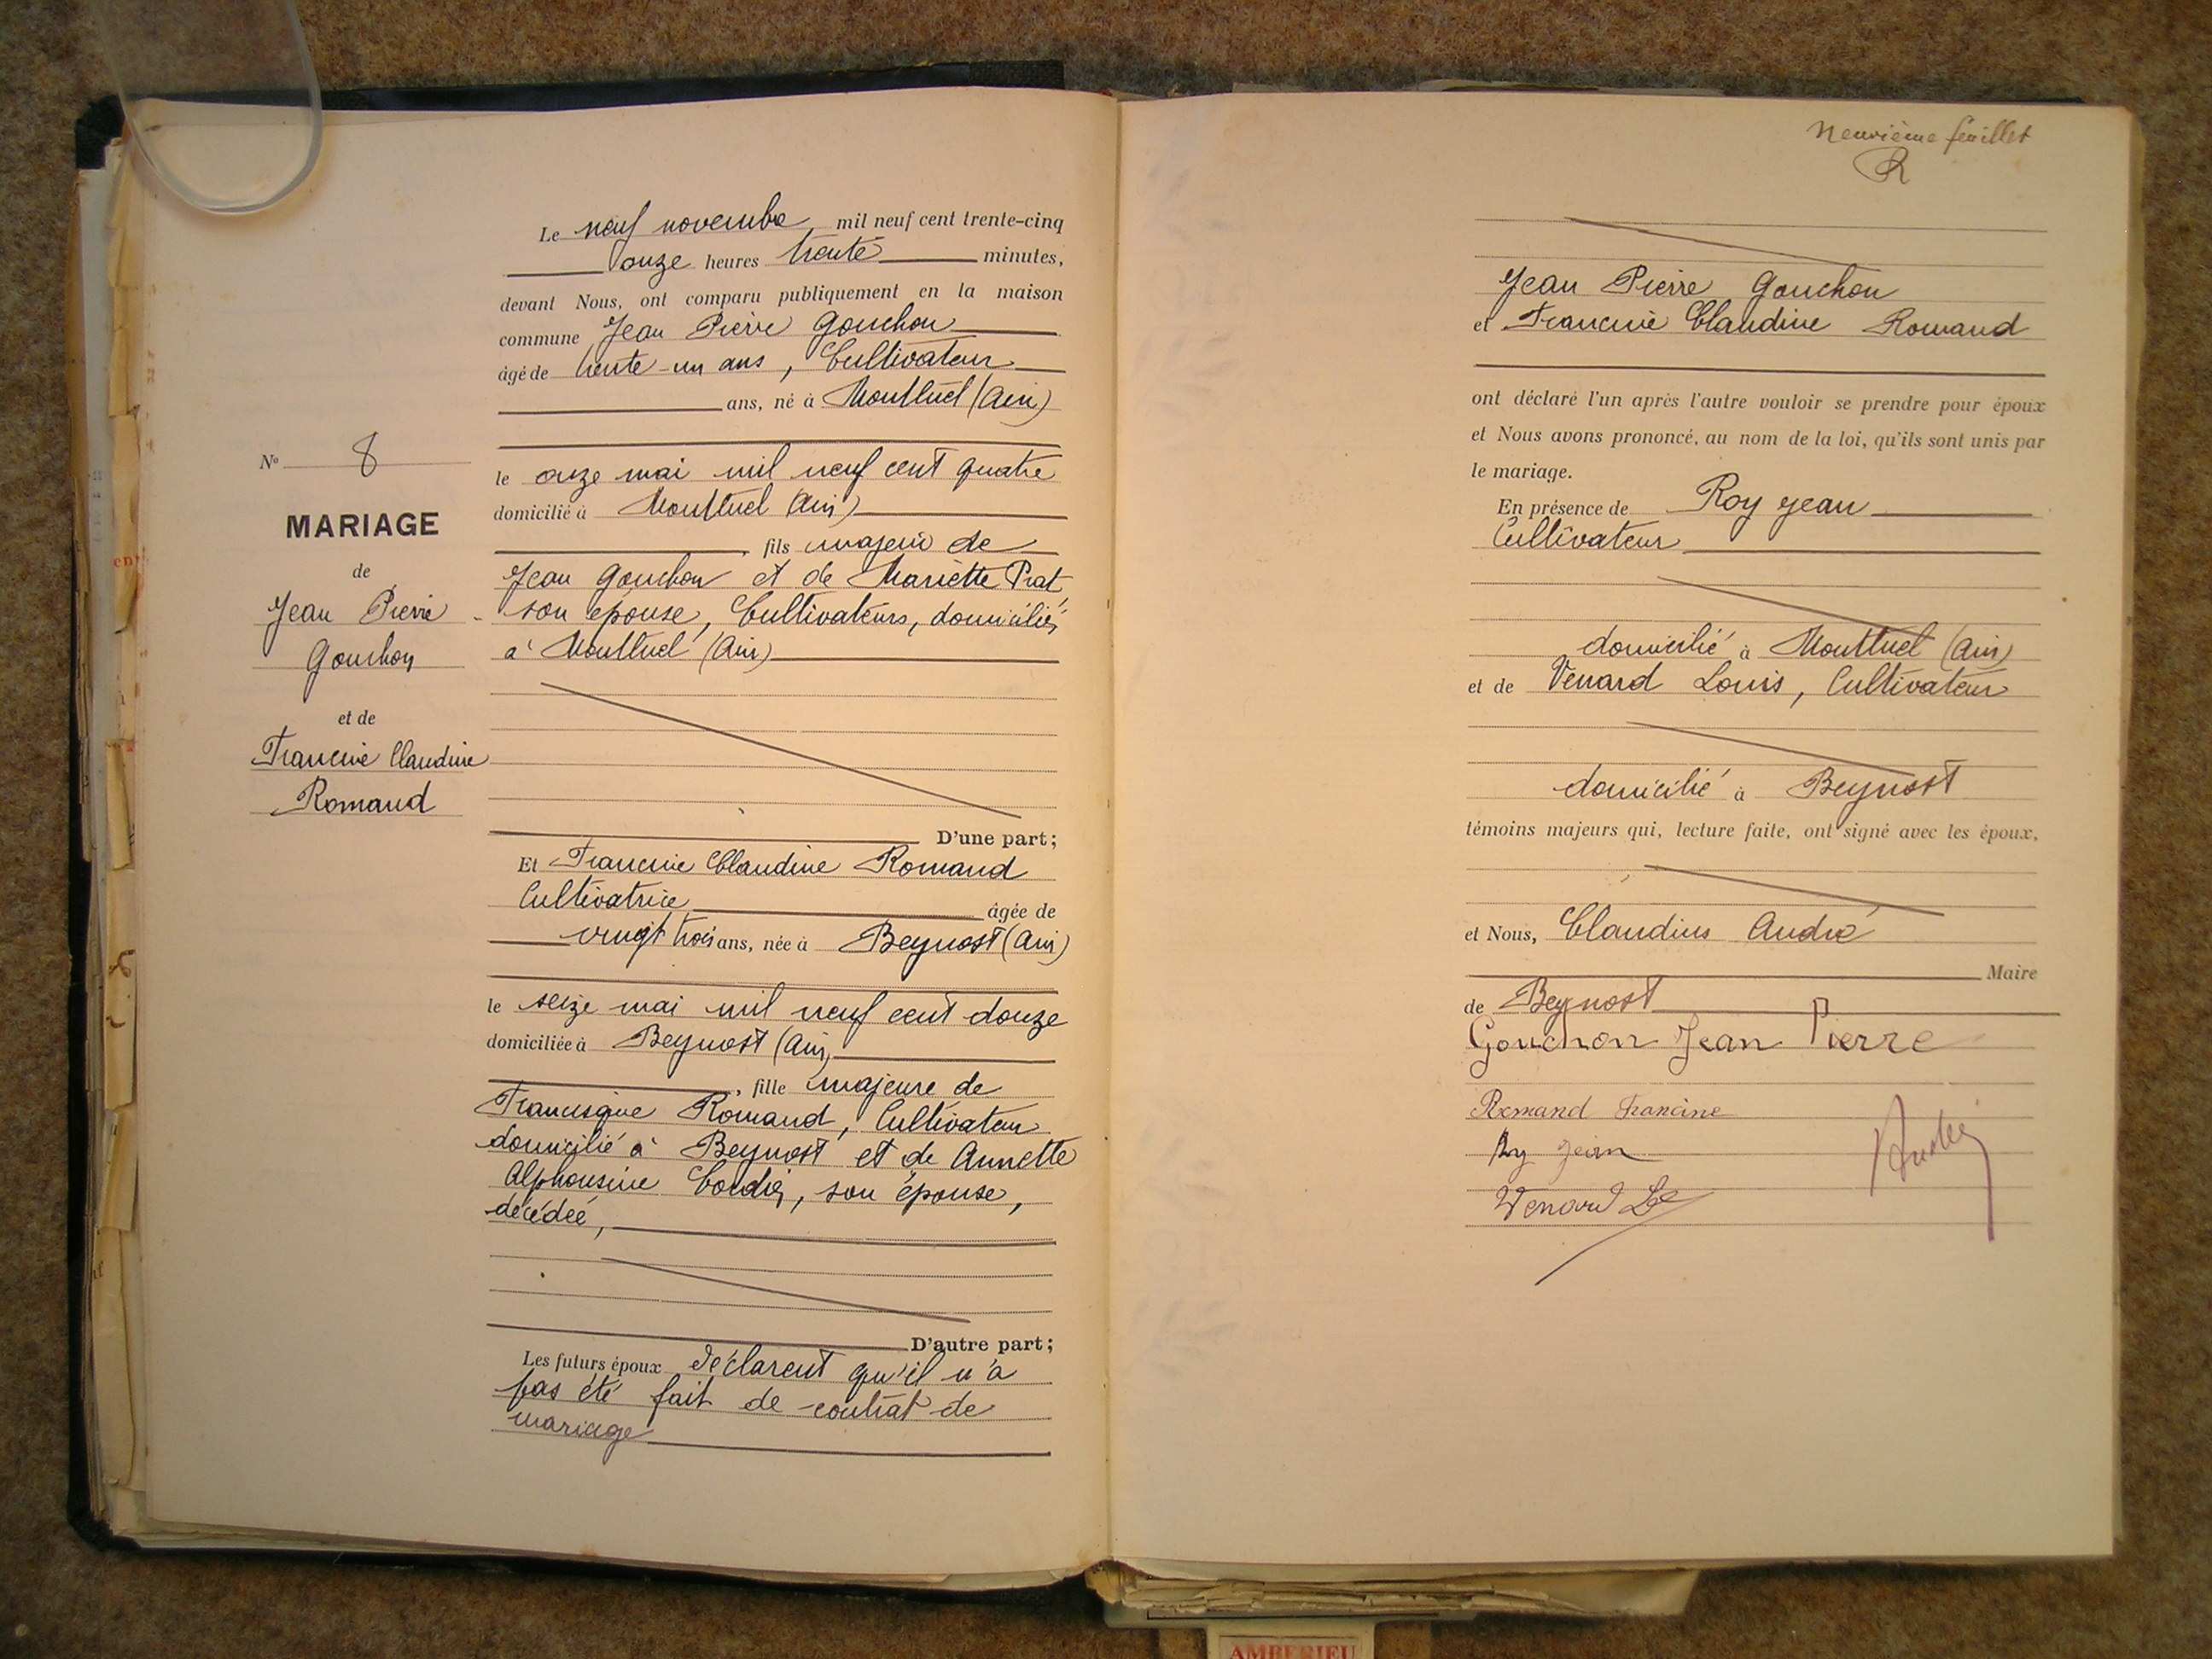 Nº 8
MARIAGE
de
Jean Pierre
Gouchon
et de
Francine Claudine
Romand
Le neuf novembre mil neuf cent trente-cinq
onze heures trente minutes,
devant Nous, ont comparu publiquement en la maison
commune Jean Pierre Gouchon
âgé de trente-un ans, Cultivateur
ans, né à Montluel (Ain)
le onze mai mil neuf cent quatre
domicilié à Montluel (Ain)
, fils majeur de
Jean Gouchon et de Mariette Prat,
son épouse, Cultivateurs, domiciliés
à Montluel (Ain)
D'une part;
Et Francine Claudine Romand
Cultivatrice âgée de
vingt trois ans, née à Beynost (Ain)
le seize mai mil neuf cent douze
domiciliée à Beynost (Ain)
, fille majeure de
Francisque Romand, Cultivateur
domicilié à Beynost et de Annette
Alphonsine Cordier, son épouse,
décédée,
D'autre part;
Les futurs époux déclarent qu'il n'a
pas été fait de contrat de
mariage
Neuvième feuillet
R
Jean Pierre Gouchon
et Francine Claudine Romand
ont déclaré l'un après l'autre vouloir se prendre pour époux
et Nous avons prononcé, au nom de la loi, qu'ils sont unis par
le mariage.
En présence de Roy Jean
Cultivateur
domicilié à Montluel (Ain)
et de Venard Louis, Cultivateur
domicilié à Beynost
témoins majeurs qui, lecture faite, ont signé avec les époux,
et Nous, Claudius André
Maire
de Beynost
Gouchon Jean Pierre
Romand Francine
Roy Jean
Venard Ls
André
AMBERIEU